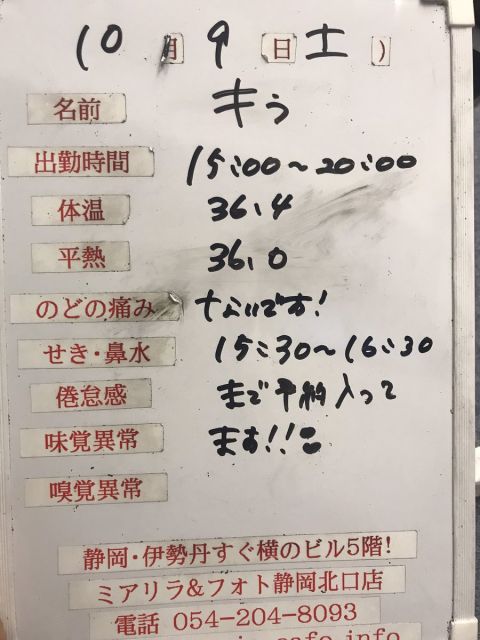 10月9日土)
名前 キう
出勤時間 15:00~20:00
体温 36.4
平熱 36.0
のどの痛み ないです!
せき・鼻水 15:30~16:30
倦怠感 まで予約入って
味覚異常 ます!!
嗅覚異常
静岡・伊勢丹すぐ横のビル5階!
ミアリラ&フォト静岡北口店
電話 054-204-8093